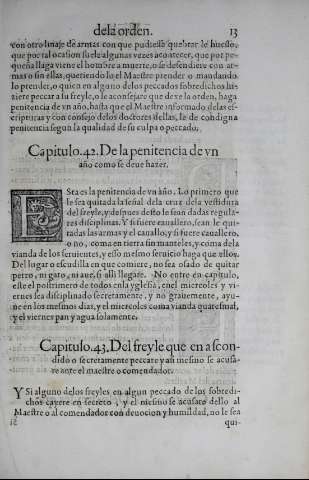 dela orden. 13
con otro linaje de armas con que pudiesse quebrar le huesso,
que por tal ocasion suele algunas vezes acontecer, que por pe-
queña llaga viene el hombre a muerte, o se defendiere con ar-
mas o sin ellas, queriendo lo el Maestre prender o mandando
lo prender, o quien en alguno delos peccados sobredichos hi-
ziere peccar a su freyle, o le aconsejare que dexe la orden, haga
penitencia de vn año, hasta que el Maestre informado delas es-
cripturas y con consejo delos doctores dellas, le de condigna
penitencia segun la qualidad de su culpa o peccado.
Capitulo.42. De la penitencia de vn
año como se deue hazer.
ESta es la penitencia de vn año. Lo primero que
le sea quitada la señal dela cruz dela vestidura
del freyle, y despues desto le sean dadas regula-
res disciplinas. Y si fuere cauallero, sean le qui-
tadas las armas y el cauallo, y si fuere cauallero,
o no, coma en tierra sin manteles, y coma dela
vianda de los seruientes, y esso mesmo seruicio haga que ellos.
Del lugar o escudilla en que comiere, no sea osado de quitar
perro, ni gato, ni aue, si alli llegare. No entre en capitulo,
este el postrimero de todos en la yglesia, en el miercoles y vi-
ernes sea disciplinado secretamente, y no grauemente, ayu-
ne en los mesmos dias, y el miercoles coma vianda quaresmal,
y el viernes pan y agua solamente.
Capitulo.43. Del freyle que en ascon-
dido o secretamente peccare y assi mesmo se acusa-
re ante el maestre o comendador.
Y Si alguno delos freyles en algun peccado de los sobredi-
chos cayere en secreto, y el mesmo se acusare dello al
Maestre o al comendador con deuocion y humildad, no le sea
qui-